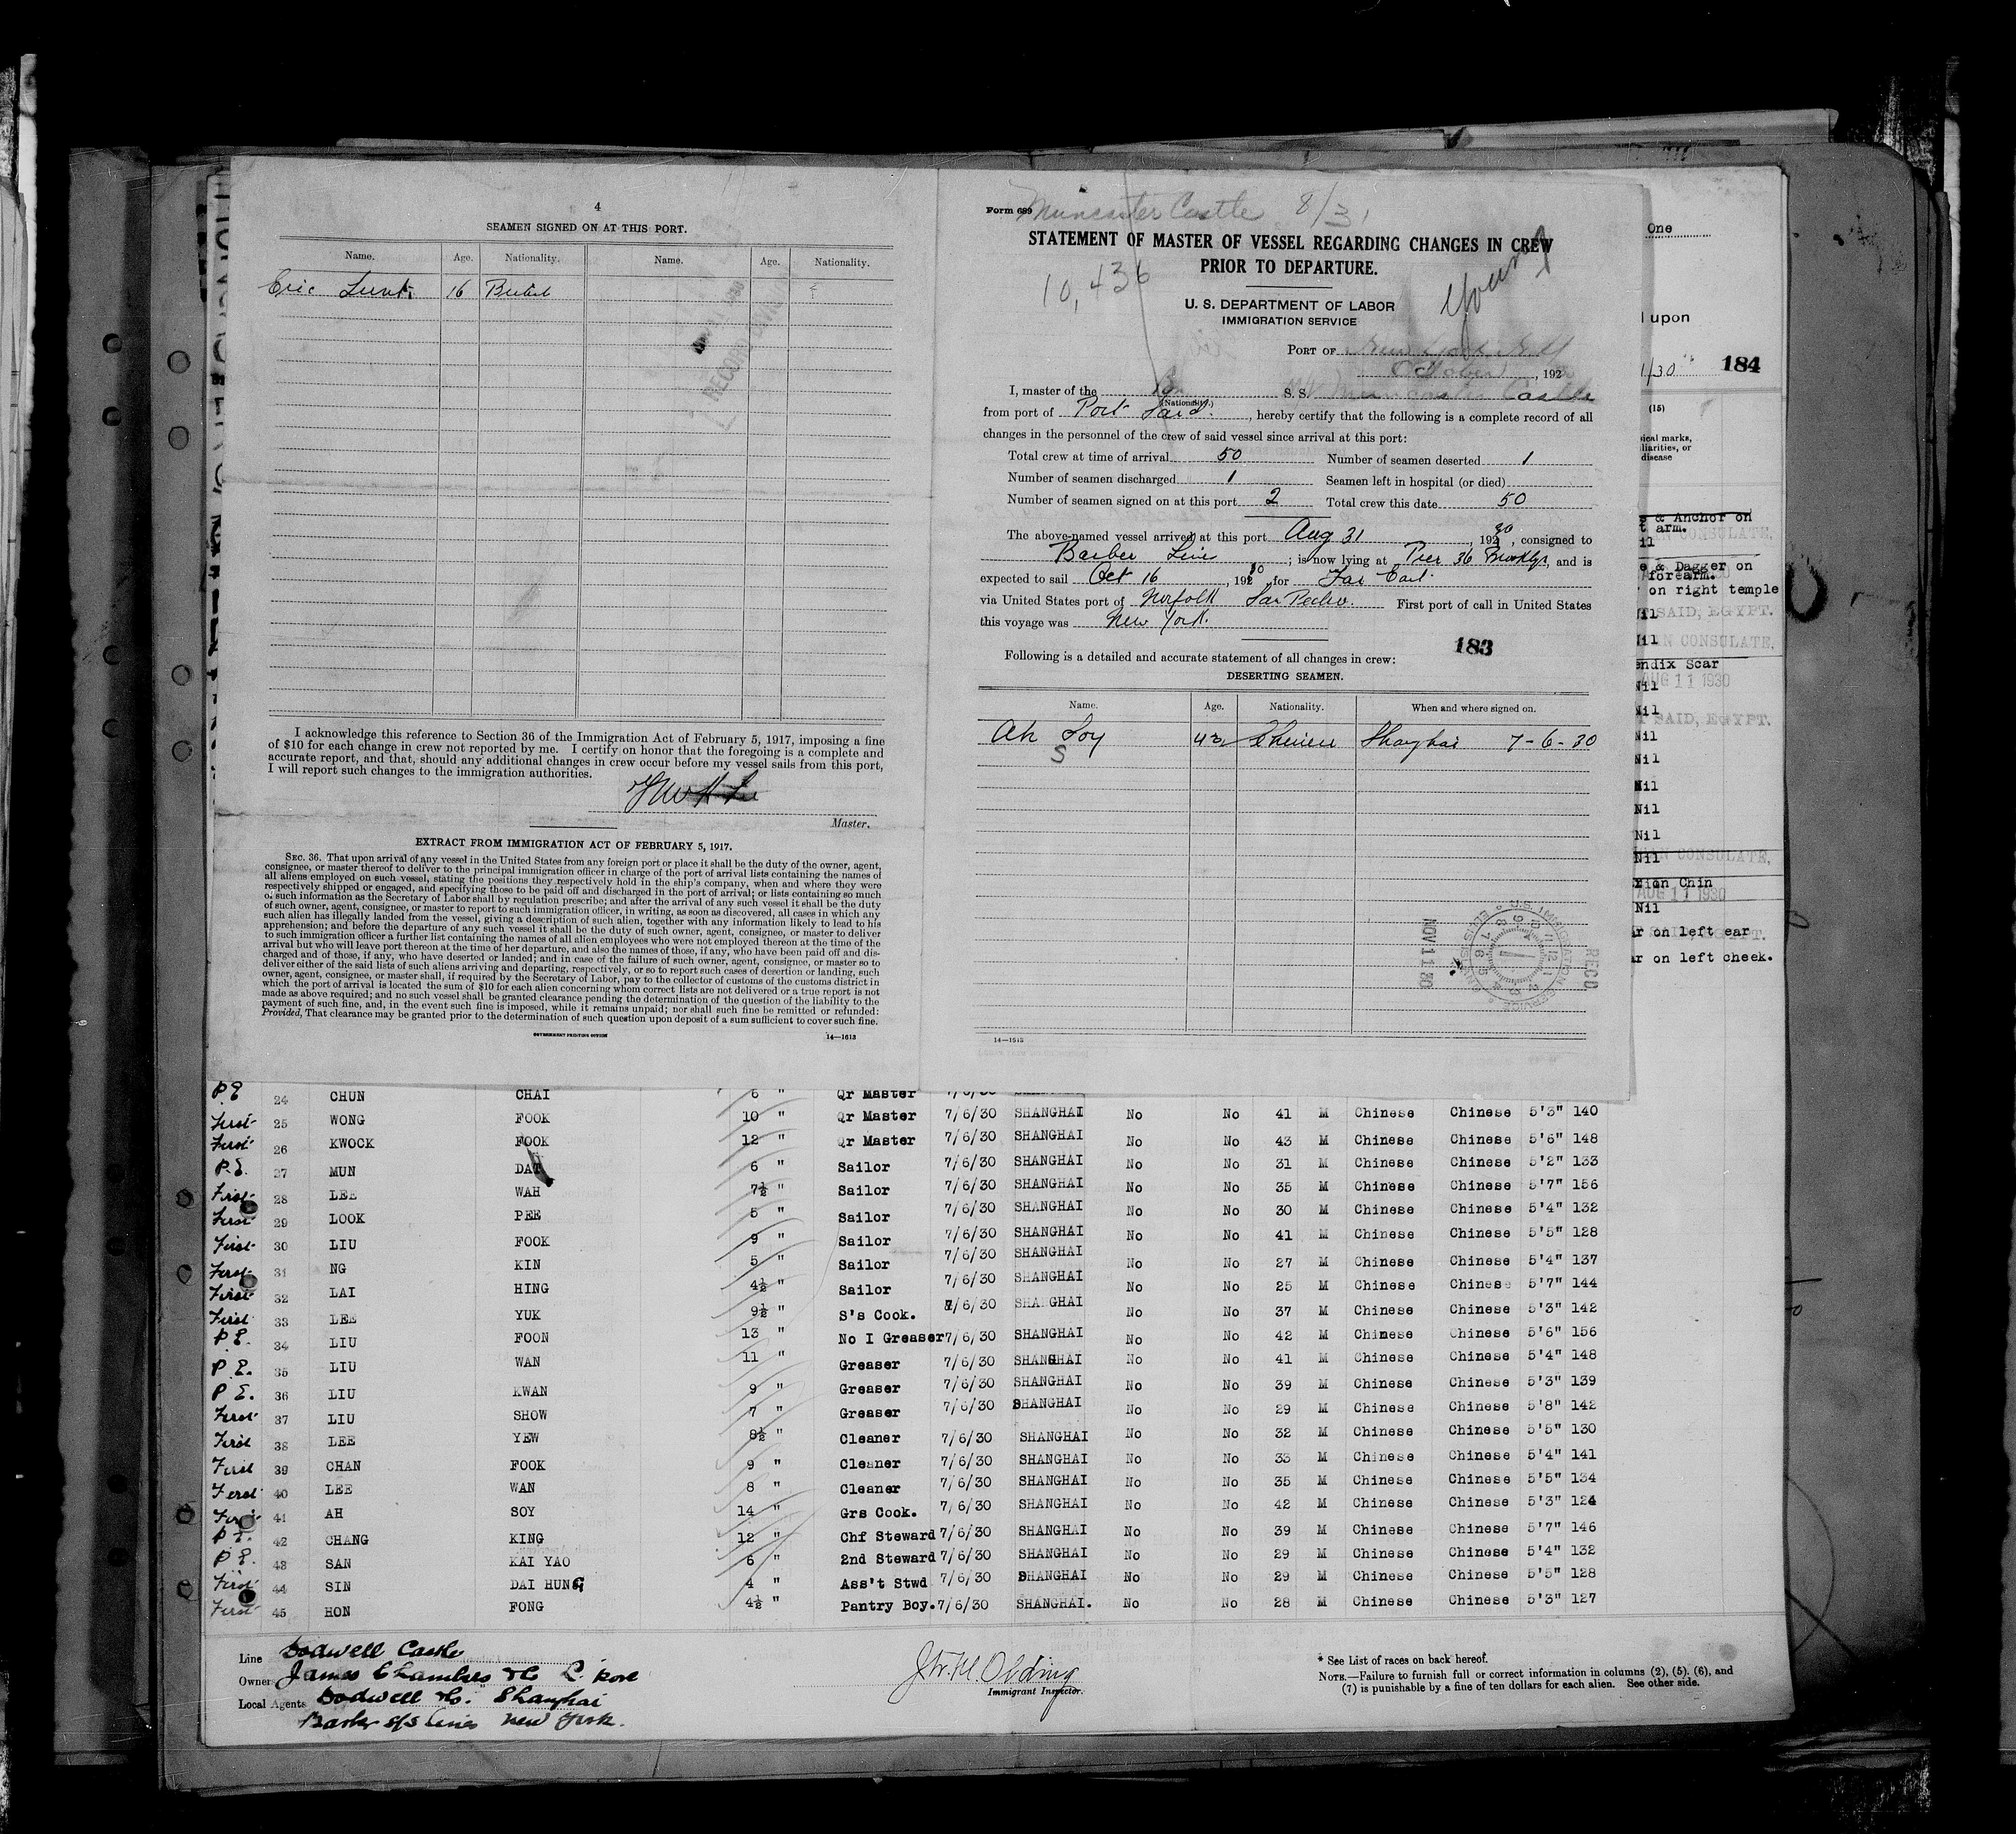 4
SEAMEN SIGNED ON AT THIS PORT.
Name. Age. Nationality. Name. Age. Nationality.
Eric 16
I acknowledge this reference to Section 36 of the Immigration Act of February 5, 1917, imposing a fine
of $10 for each change in crew not reported by me. I certify on honor that the foregoing is a complete and
accurate report, and that, should any additional changes in crew occur before my vessel sails from this port,
I will report such changes to the immigration authorities.
Master.
EXTRACT FROM IMMIGRATION ACT OF FEBRUARY 5, 1917.
SEC. 36. That upon arrival of any vessel in the United States from any foreign port or place it shall be the duty of the owner, agent,
consignee, or master thereof to deliver to the principal immigration officer in charge of the port of arrival lists containing the names of
all aliens employed on such vessel, stating the positions they respectively hold in the ship's company, when and where they were
respectively shipped or engaged, and specifying those to be paid off and discharged in the port of arrival; or lists containing so much
of such information as the Secretary of Labor shall by regulation prescribe; and after the arrival of any such vessel it shall be the duty
of such owner, agent, consignee, or master to report to such immigration officer, in writing, as soon as discovered, all cases in which any
such alien has illegally landed from the vessel, giving a description of such alien, together with any information likely to lead to his
apprehension; and before the departure of any such vessel it shall be the duty of such owner, agent, consignee, or master to deliver
to such immigration officer a further list containing the names of all alien employees who were not employed thereon at the time of the
arrival but who will leave port thereon at the time of her departure, and also the names of those, if any, who have been paid off and dis-
charged and of those, if any, who have deserted or landed; and in case of the failure of such owner, agent, consignee, or master so to
deliver either of the said lists of such aliens arriving and departing, respectively, or so to report such cases of desertion or landing, such
owner, agent, consignee, or master, shall, if required by the Secretary of Labor, pay to the collector of customs of the customs district in
which the port of arrival is located the sum of $10 for each alien concerning whom correct lists are not delivered or a true report is not
made as above required; and no such vessel shall be granted clearance pending the determination of the question of the liability to the
payment of such fine, and, in the event such fine is imposed, while it remains unpaid; nor shall such fine be remitted or refunded:
Provided, That clearance may be granted prior to the determination of such question upon deposit of a sum sufficient to cover such fine.
GOVERNMENT PRINTING OFFICE 14—1613
Form 689 Muncaster Castle 8/31
STATEMENT OF MASTER OF VESSEL REGARDING CHANGES IN CREW
PRIOR TO DEPARTURE.
10,436
U. S. DEPARTMENT OF LABOR
IMMIGRATION SERVICE
PORT OF New York N.Y
October, 192
I, master of the Br S. S. Muncaster Castle
(Nationality.)
from port of Port Said., hereby certify that the following is a complete record of all
changes in the personnel of the crew of said vessel since arrival at this port:
Total crew at time of arrival 50 Number of seamen deserted 1
Number of seamen discharged 1 Seamen left in hospital (or died)
Number of seamen signed on at this port 2 Total crew this date 50
The above-named vessel arrived at this port Aug 31, 1930, consigned to
Barber Line; is now lying at Pier 36 Brooklyn, and is
expected to sail Oct 16, 1930, for Far East.
via United States port of Norfolk San Pedro. First port of call in United States
this voyage was New York.
183
Following is a detailed and accurate statement of all changes in crew:
DESERTING SEAMEN.
Name. Age. Nationality. When and where signed on.
Ah Soy 42 Chinese Shanghai 7-6-30
S
REC'D
U.S. IMMIGRATION SERVICE
NOV 11 30
14—1613
One
upon
184
(15)
sical marks,
liarities, or
disease
& Anchor on
t arm.
il
& Dagger on
forearm.
on right temple
Nil
SAID, EGYPT.
Nil
N CONSULATE,
endix Scar
Nil
AUG 11 1930
Nil
SAID, EGYPT.
Nil
Nil
Nil
Nil
Nil
Nil
CAN CONSULATE,
on Chin
AUG 11 1930
Nil
ar on left ear
ar on left cheek.
P.E. 24 CHUN CHAI 6 " Qr Master 7/6/30
First 25 WONG FOOK 10 " Qr Master 7/6/30 SHANGHAI No No 41 M Chinese Chinese 5'3" 140
First 26 KWOCK FOOK 12 " Qr Master 7/6/30 SHANGHAI No No 43 M Chinese Chinese 5'6" 148
P.E. 27 MUN DAT 6 " Sailor 7/6/30 SHANGHAI No No 31 M Chinese Chinese 5'2" 133
First 28 LEE WAH 7½ " Sailor 7/6/30 SHANGHAI No No 35 M Chinese Chinese 5'7" 156
First 29 LOOK PEE 5 " Sailor 7/6/30 SHANGHAI No No 30 M Chinese Chinese 5'4" 132
First 30 LIU FOOK 9 " Sailor 7/6/30 SHANGHAI No No 41 M Chinese Chinese 5'5" 128
First 31 NG KIN 5 " Sailor 7/6/30 SHANGHAI No No 27 M Chinese Chinese 5'4" 137
First 32 LAI HING 4½ " Sailor 7/6/30 SHANGHAI No No 25 M Chinese Chinese 5'7" 144
First 33 LEE YUK 9½ " S's Cook. 7/6/30 SHANGHAI No No 37 M Chinese Chinese 5'3" 142
P.E. 34 LIU FOON 13 " No I Greaser 7/6/30 SHANGHAI No No 42 M Chinese Chinese 5'6" 156
P.E. 35 LIU WAN 11 " Greaser 7/6/30 SHANGHAI No No 41 M Chinese Chinese 5'4" 148
P.E. 36 LIU KWAN 9 " Greaser 7/6/30 SHANGHAI No No 39 M Chinese Chinese 5'3" 139
First 37 LIU SHOW 7 " Greaser 7/6/30 SHANGHAI No No 29 M Chinese Chinese 5'8" 142
First 38 LEE YEW 8½ " Cleaner 7/6/30 SHANGHAI No No 32 M Chinese Chinese 5'5" 130
First 39 CHAN FOOK 9 " Cleaner 7/6/30 SHANGHAI No No 33 M Chinese Chinese 5'4" 141
First 40 LEE WAN 8 " Cleaner 7/6/30 SHANGHAI No No 35 M Chinese Chinese 5'5" 134
First 41 AH SOY 14 " Grs Cook. 7/6/30 SHANGHAI No No 42 M Chinese Chinese 5'3" 124
P.E. 42 CHANG KING 12 " Chf Steward 7/6/30 SHANGHAI No No 39 M Chinese Chinese 5'7" 146
P.E. 43 SAN KAI YAO 6 " 2nd Steward 7/6/30 SHANGHAI No No 29 M Chinese Chinese 5'4" 132
First 44 SIN DAI HUNG 4 " Ass't Stwd 7/6/30 SHANGHAI No No 29 M Chinese Chinese 5'5" 128
First 45 HON FONG 4½ " Pantry Boy. 7/6/30 SHANGHAI. No No 28 M Chinese Chinese 5'3" 127
Line Dodwell Castle
Owner James Chambers & Co L'pool
Local Agents Dodwell & Co. Shanghai
Barber S/S Lines New York.
Immigrant Inspector.
* See List of races on back hereof.
NOTE.—Failure to furnish full or correct information in columns (2), (5), (6), and
(7) is punishable by a fine of ten dollars for each alien. See other side.